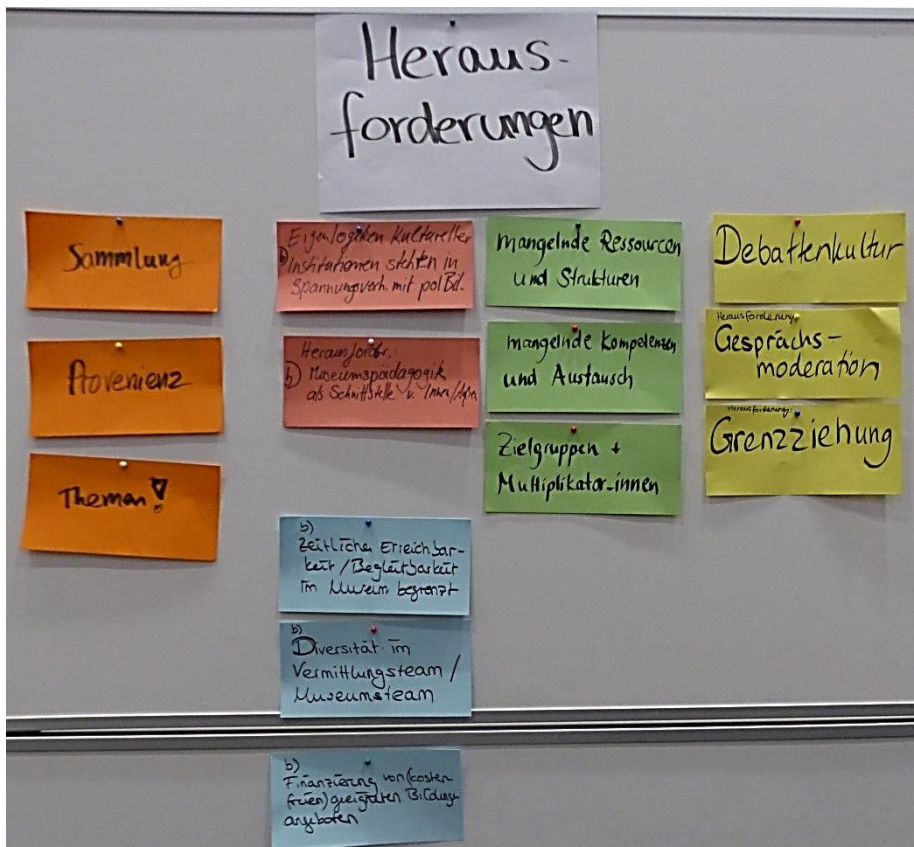 Heraus-
forderungen
Sammlung
Provenienz
Themen!
Eigenlogiken Kultureller
b) Institutionen stehen in
Spannungsverh. mit polBil.
Herausforder.:
b) Museumspädagogik
als Schnittstelle v. Innen/Außen
b)
Zeitliche Erreichbar-
keit / Begleitbarkeit
im Museum begrenzt
b)
Diversität im
Vermittlungsteam /
Museumsteam
b)
Finanzierung von (kosten
freien) geeigneten Bildungs
angeboten
mangelnde Ressourcen
und Strukturen
mangelnde Kompetenzen
und Austausch
Zielgruppen +
Multiplikator_innen
Debattenkultur
Herausforderung:
Gesprächs-
moderation
Herausforderung:
Grenzziehung